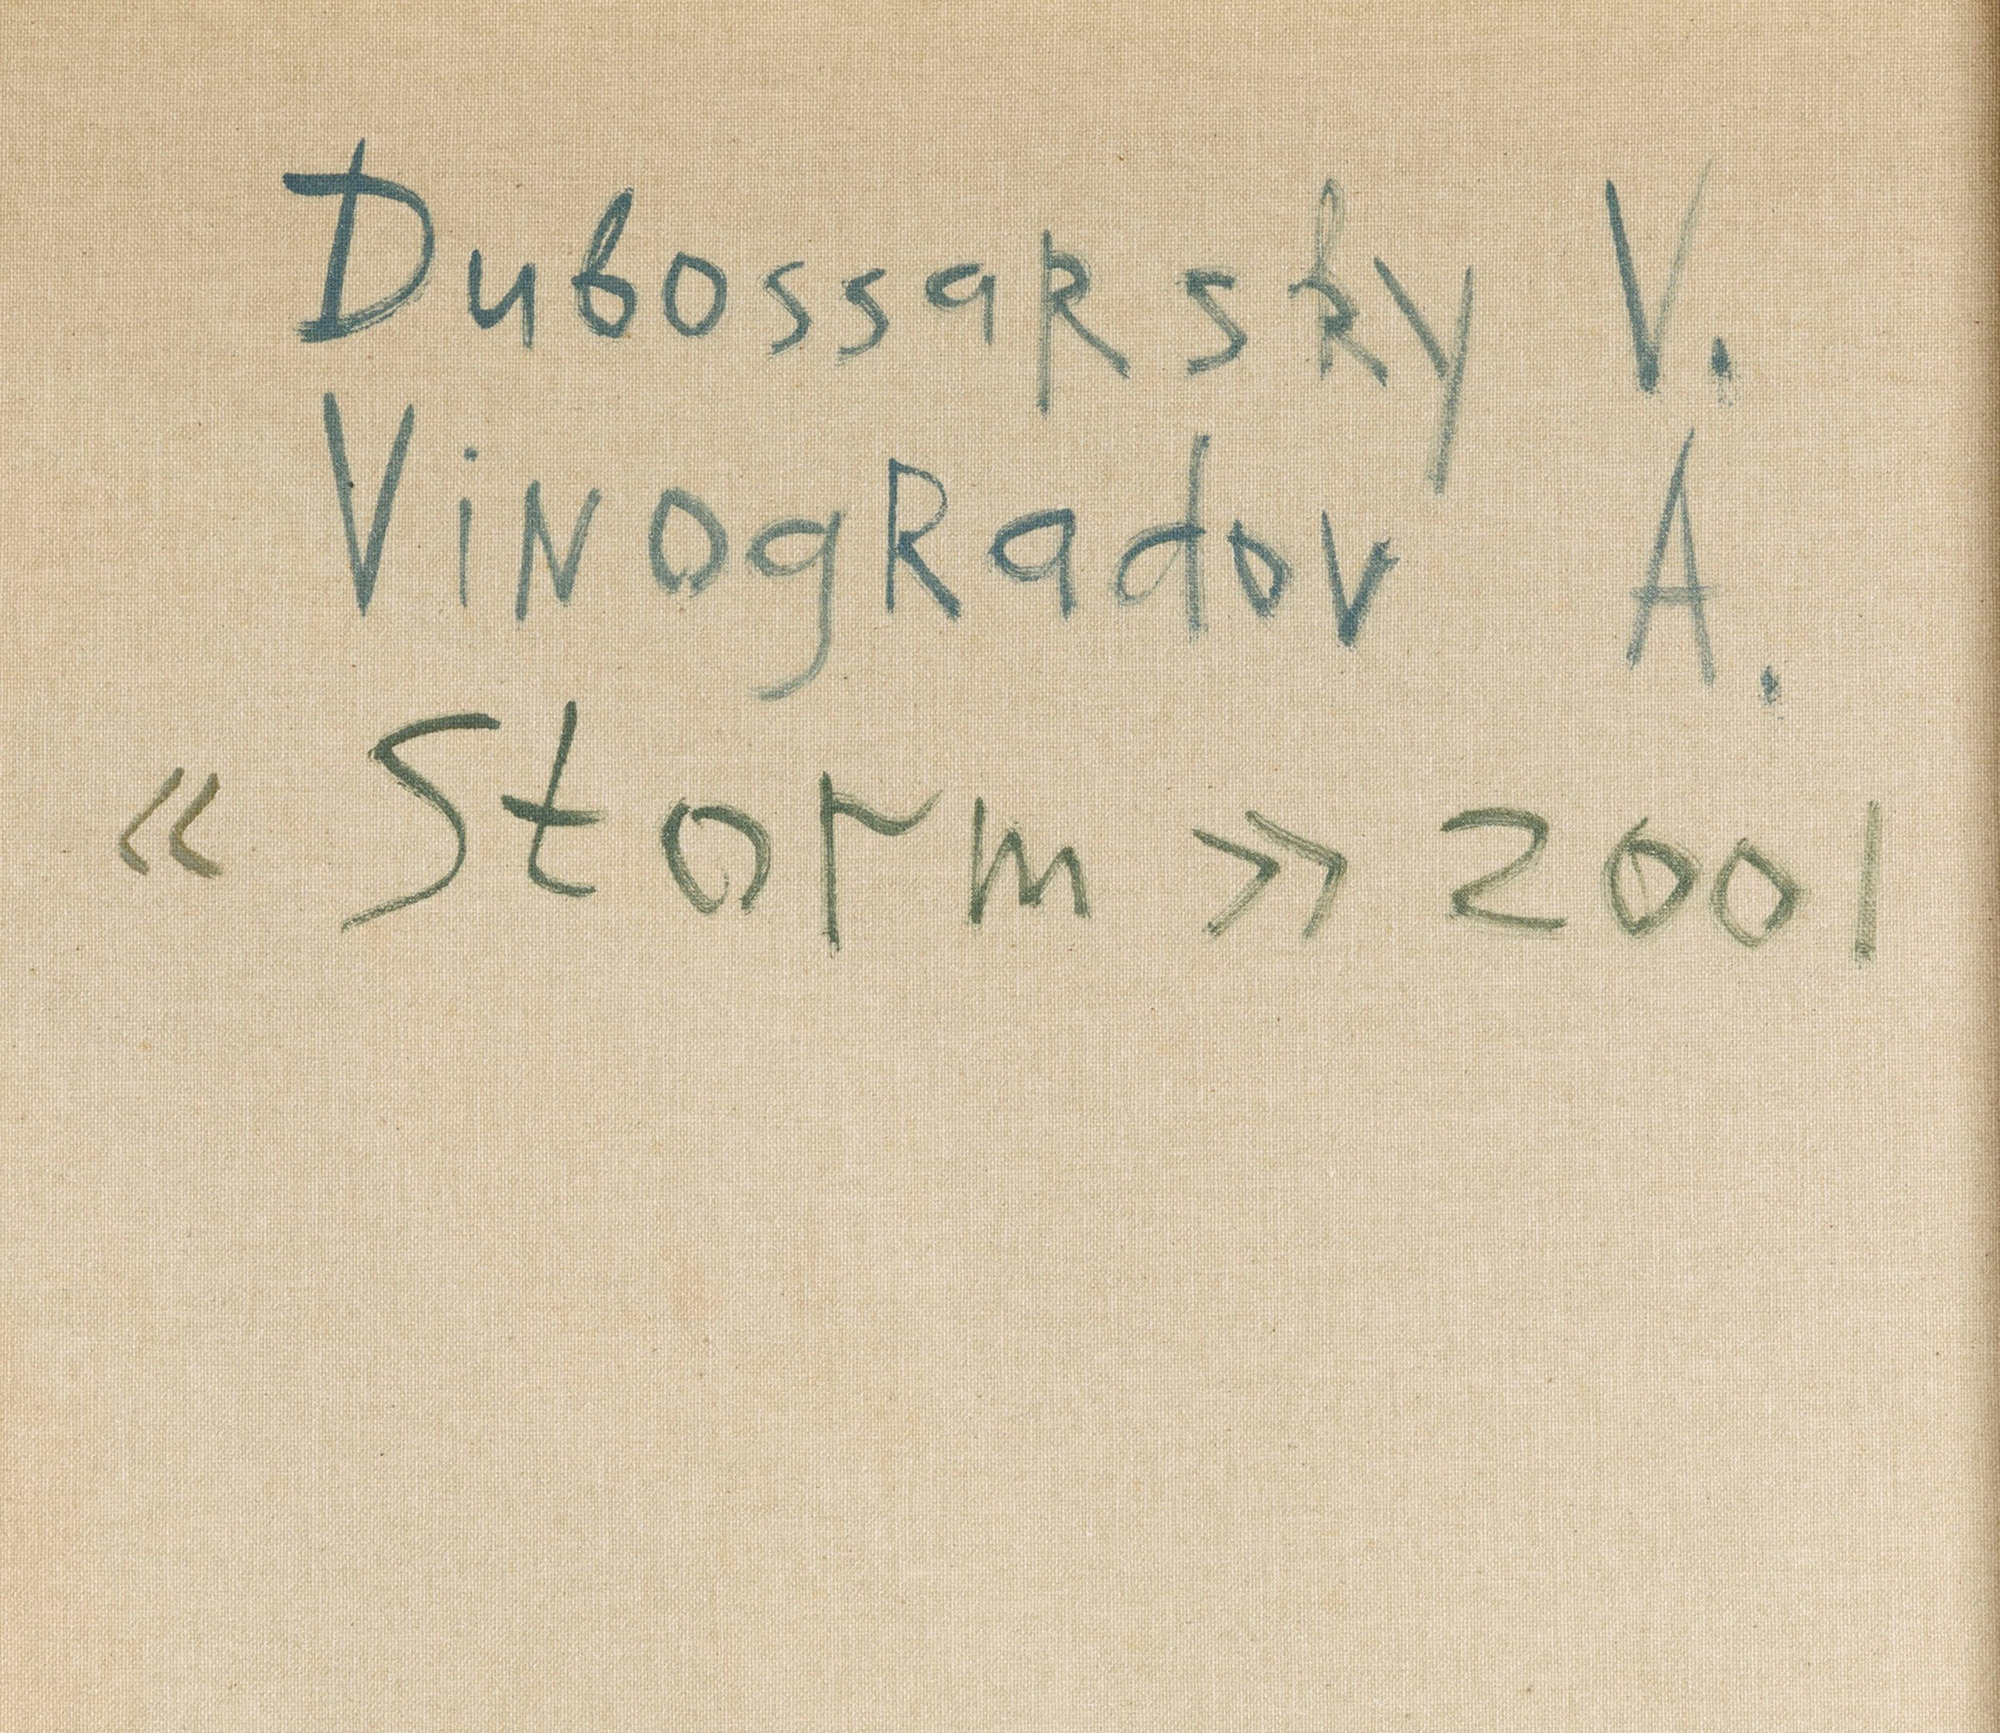 Dubossarsky V.
VinogRadov A.
« Storm » 2001